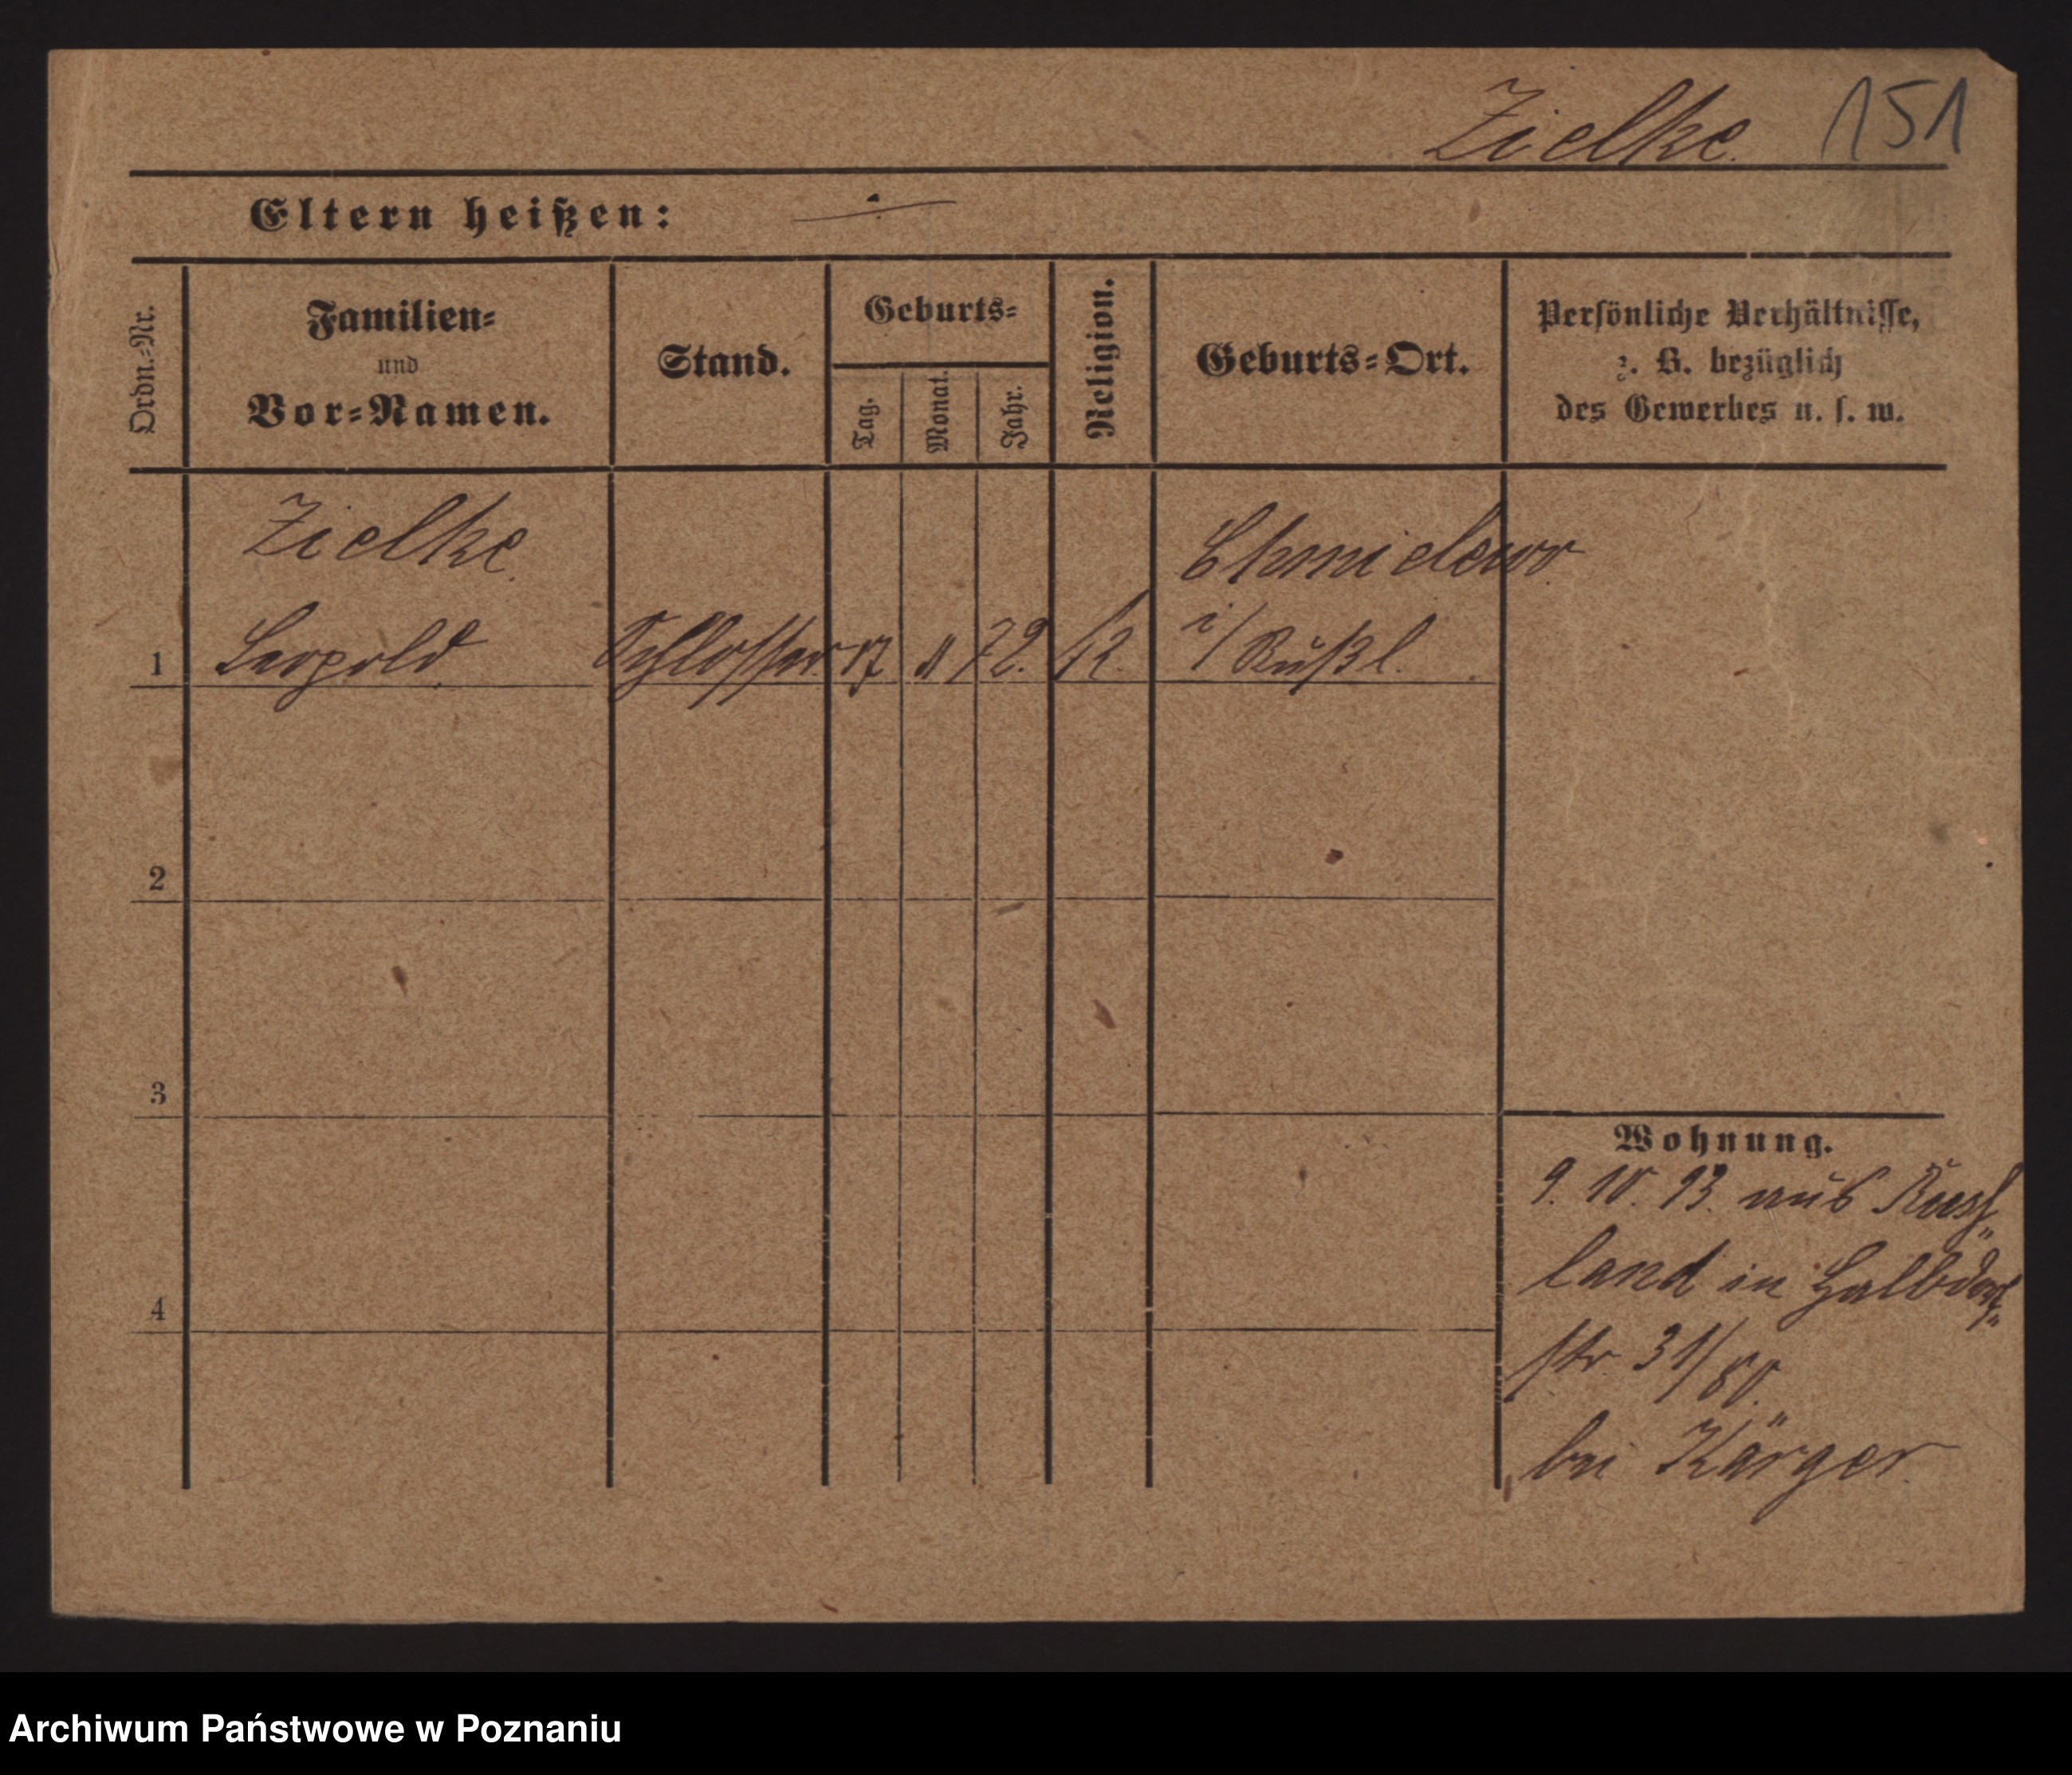 Zielke. 151
Eltern heißen: ÷
Ordn.-Nr.
Familien-
und
Vor-Namen.
Stand.
Geburts-
Tag.
Monat.
Jahr.
Religion.
Geburts-Ort.
Persönliche Verhältnisse,
z. B. bezüglich
des Gewerbes u. s. w.
Zielke.
Chmielewo
1 Leopold Schlosser 17 11 72. k. i/Rußl.
2
3
4
Wohnung.
9. 10. 93. aus Russ-
land in Halbdorf-
str 31/80.
bei Kärger
Archiwum Państwowe w Poznaniu